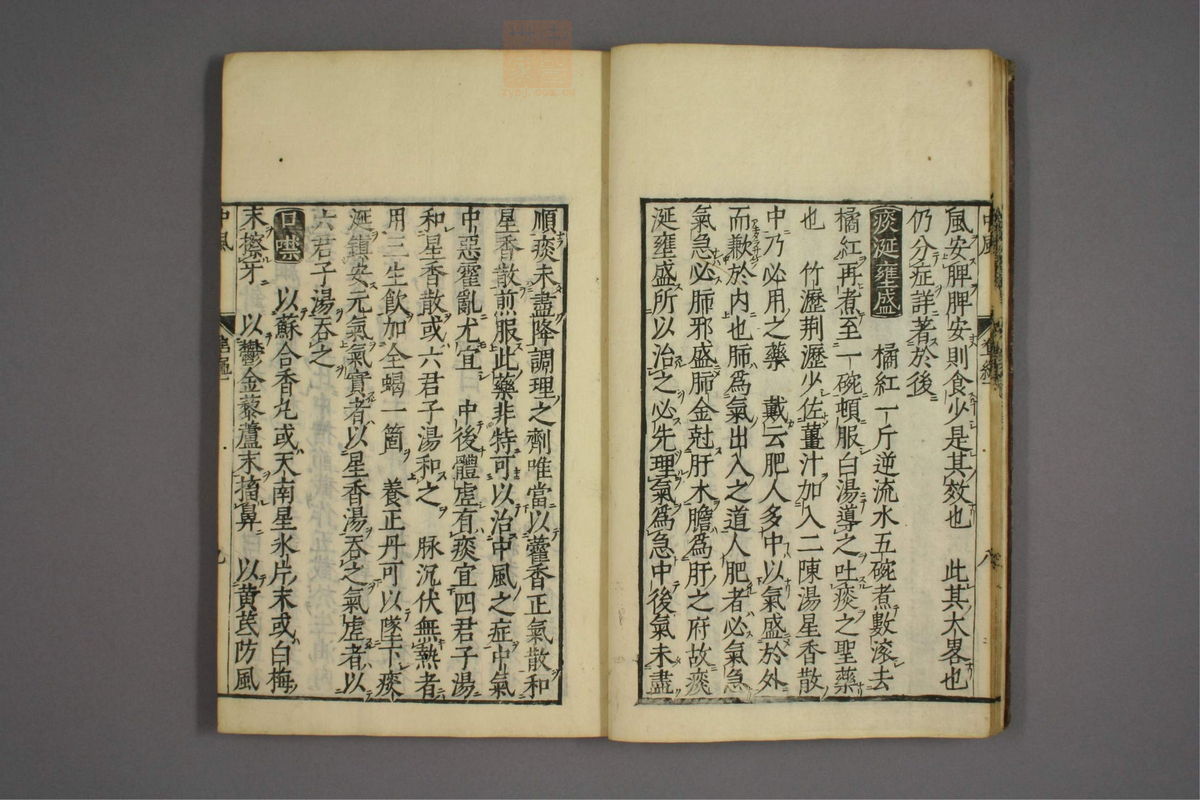 風安脾脾安則食少是其效也　此其大畧也
仍分症詳著於後
痰涎壅盛　橘紅一斤逆流水五碗煮數滚去
橘紅再煮至一碗頓服白湯導之吐痰之聖藥
也　竹瀝荆瀝少佐薑汁加入二陳湯星香散
中乃必用之藥　戴云肥人多中以氣盛於外
而歉於内也肺爲氣出入之道人肥者必氣急
氣急必肺邪盛肺金尅肝木膽爲肝之府故痰
涎壅盛所以治之必先理氣爲急中後氣未盡
順痰未盡降調理之劑唯當以藿香正氣散和
星香散煎服此藥非特可以治中風之症中氣
中惡霍亂尤宜　中後體虚有痰宜四君子湯
和星香散或六君子湯和之　脉沉伏無熱者
用三生飲加全蝎一箇　養正丹可以墜下痰
涎鎮安元氣氣實者以星香湯吞之氣虚者以
六君子湯吞之
口噤　以蘇合香丸或天南星氷片末或白梅
末擦牙　以鬱金藜蘆末搐鼻　以黄芪防風
中風
九